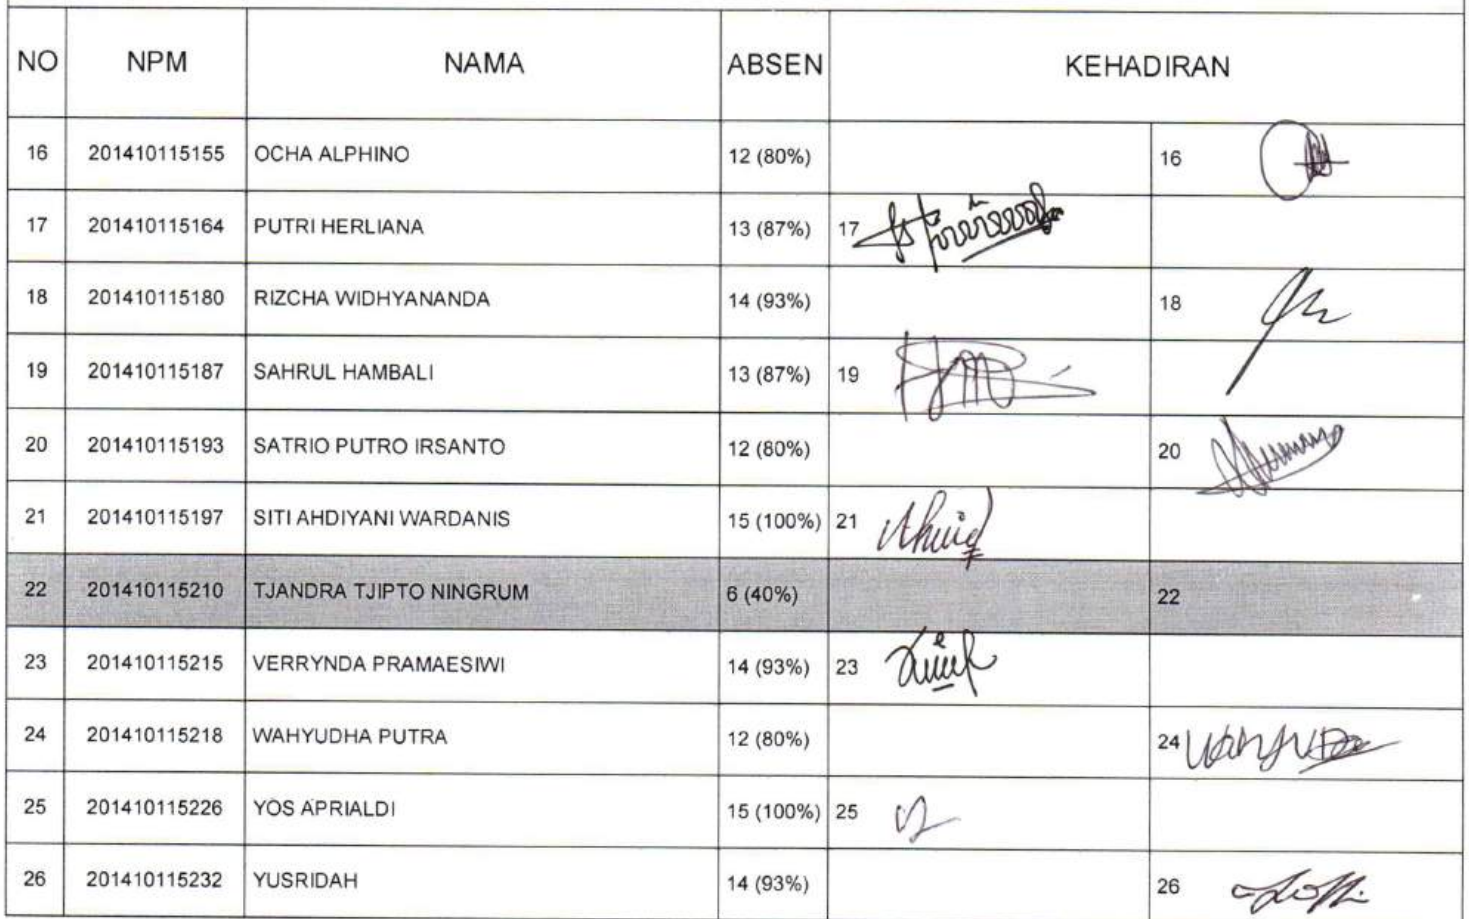 NO NPM NAMA ABSEN KEHADIRAN
16 201410115155 OCHA ALPHINO 12 (80%) 16
17 201410115164 PUTRI HERLIANA 13 (87%) 17
18 201410115180 RIZCHA WIDHYANANDA 14 (93%) 18
19 201410115187 SAHRUL HAMBALI 13 (87%) 19
20 201410115193 SATRIO PUTRO IRSANTO 12 (80%) 20
21 201410115197 SITI AHDIYANI WARDANIS 15 (100%) 21
22 201410115210 TJANDRA TJIPTO NINGRUM 6 (40%) 22
23 201410115215 VERRYNDA PRAMAESIWI 14 (93%) 23
24 201410115218 WAHYUDHA PUTRA 12 (80%) 24
25 201410115226 YOS APRIALDI 15 (100%) 25
26 201410115232 YUSRIDAH 14 (93%) 26